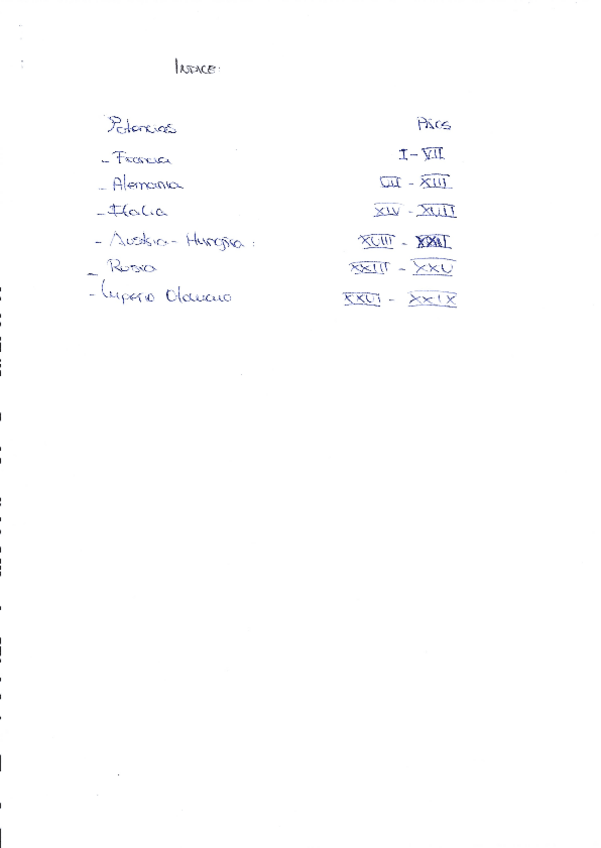 ÍNDICE:
Potencias PÁGS
- Francia I - VII
- Alemania VII - XIII
- Italia XIV - XVII
- Austria - Hungría: XVIII - XXII
- Rusia XXIII - XXV
- Imperio Otomano XXVI - XXIX